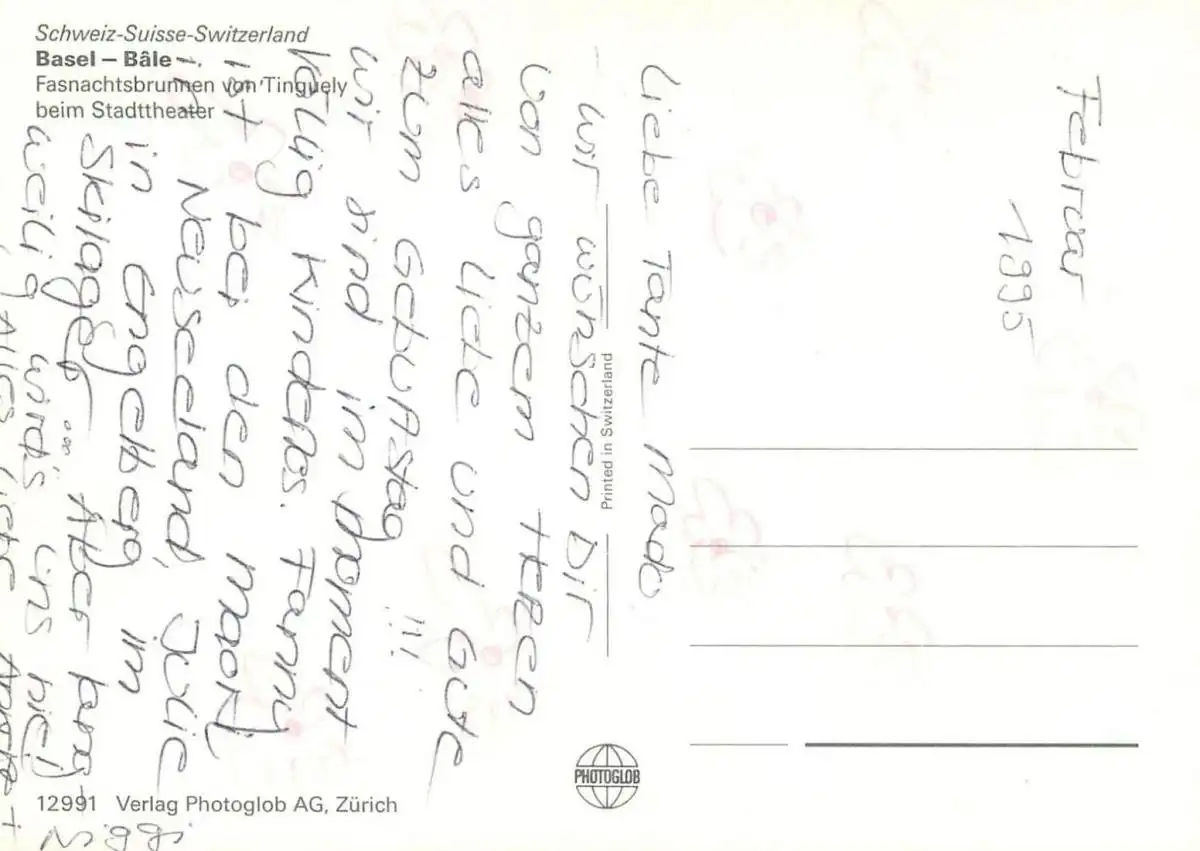 Schweiz-Suisse-Switzerland
Basel – Bâle
Fasnachtsbrunnen von Tinguely
beim Stadttheater
Februar
1995
Liebe Tante Mado
– wir wünschen Dir
von ganzem HERZEN
alles Liebe und Gute
zum Geburtstag !!!
wir sind im Moment
völlig kinderlos. Fanny
ist bei den Maori
in Neuseeland, Julie
in Engelberg im
Skilager... Aber lang-
weilig wirds uns nie!
Alles Liebe Annette +
Niggi
Printed in Switzerland
PHOTOGLOB
12991 Verlag Photoglob AG, Zürich